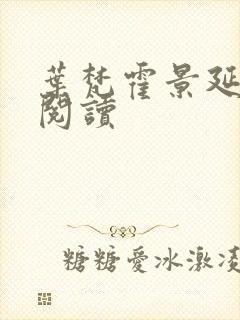 葉梵霍景延
閱讀
糖糖愛冰激凌